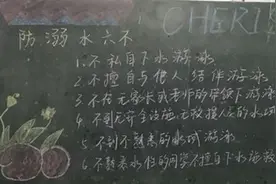 CHERI
防溺水六不
1.不私自下水游泳
2.不擅自与他人结伴游泳
3.不在无家长或老师的带领下游泳
4.不到无安全设施、无救援人员的水域游泳
5.不到不熟悉的水域游泳
6.不熟悉水性的同学不擅自下水施救